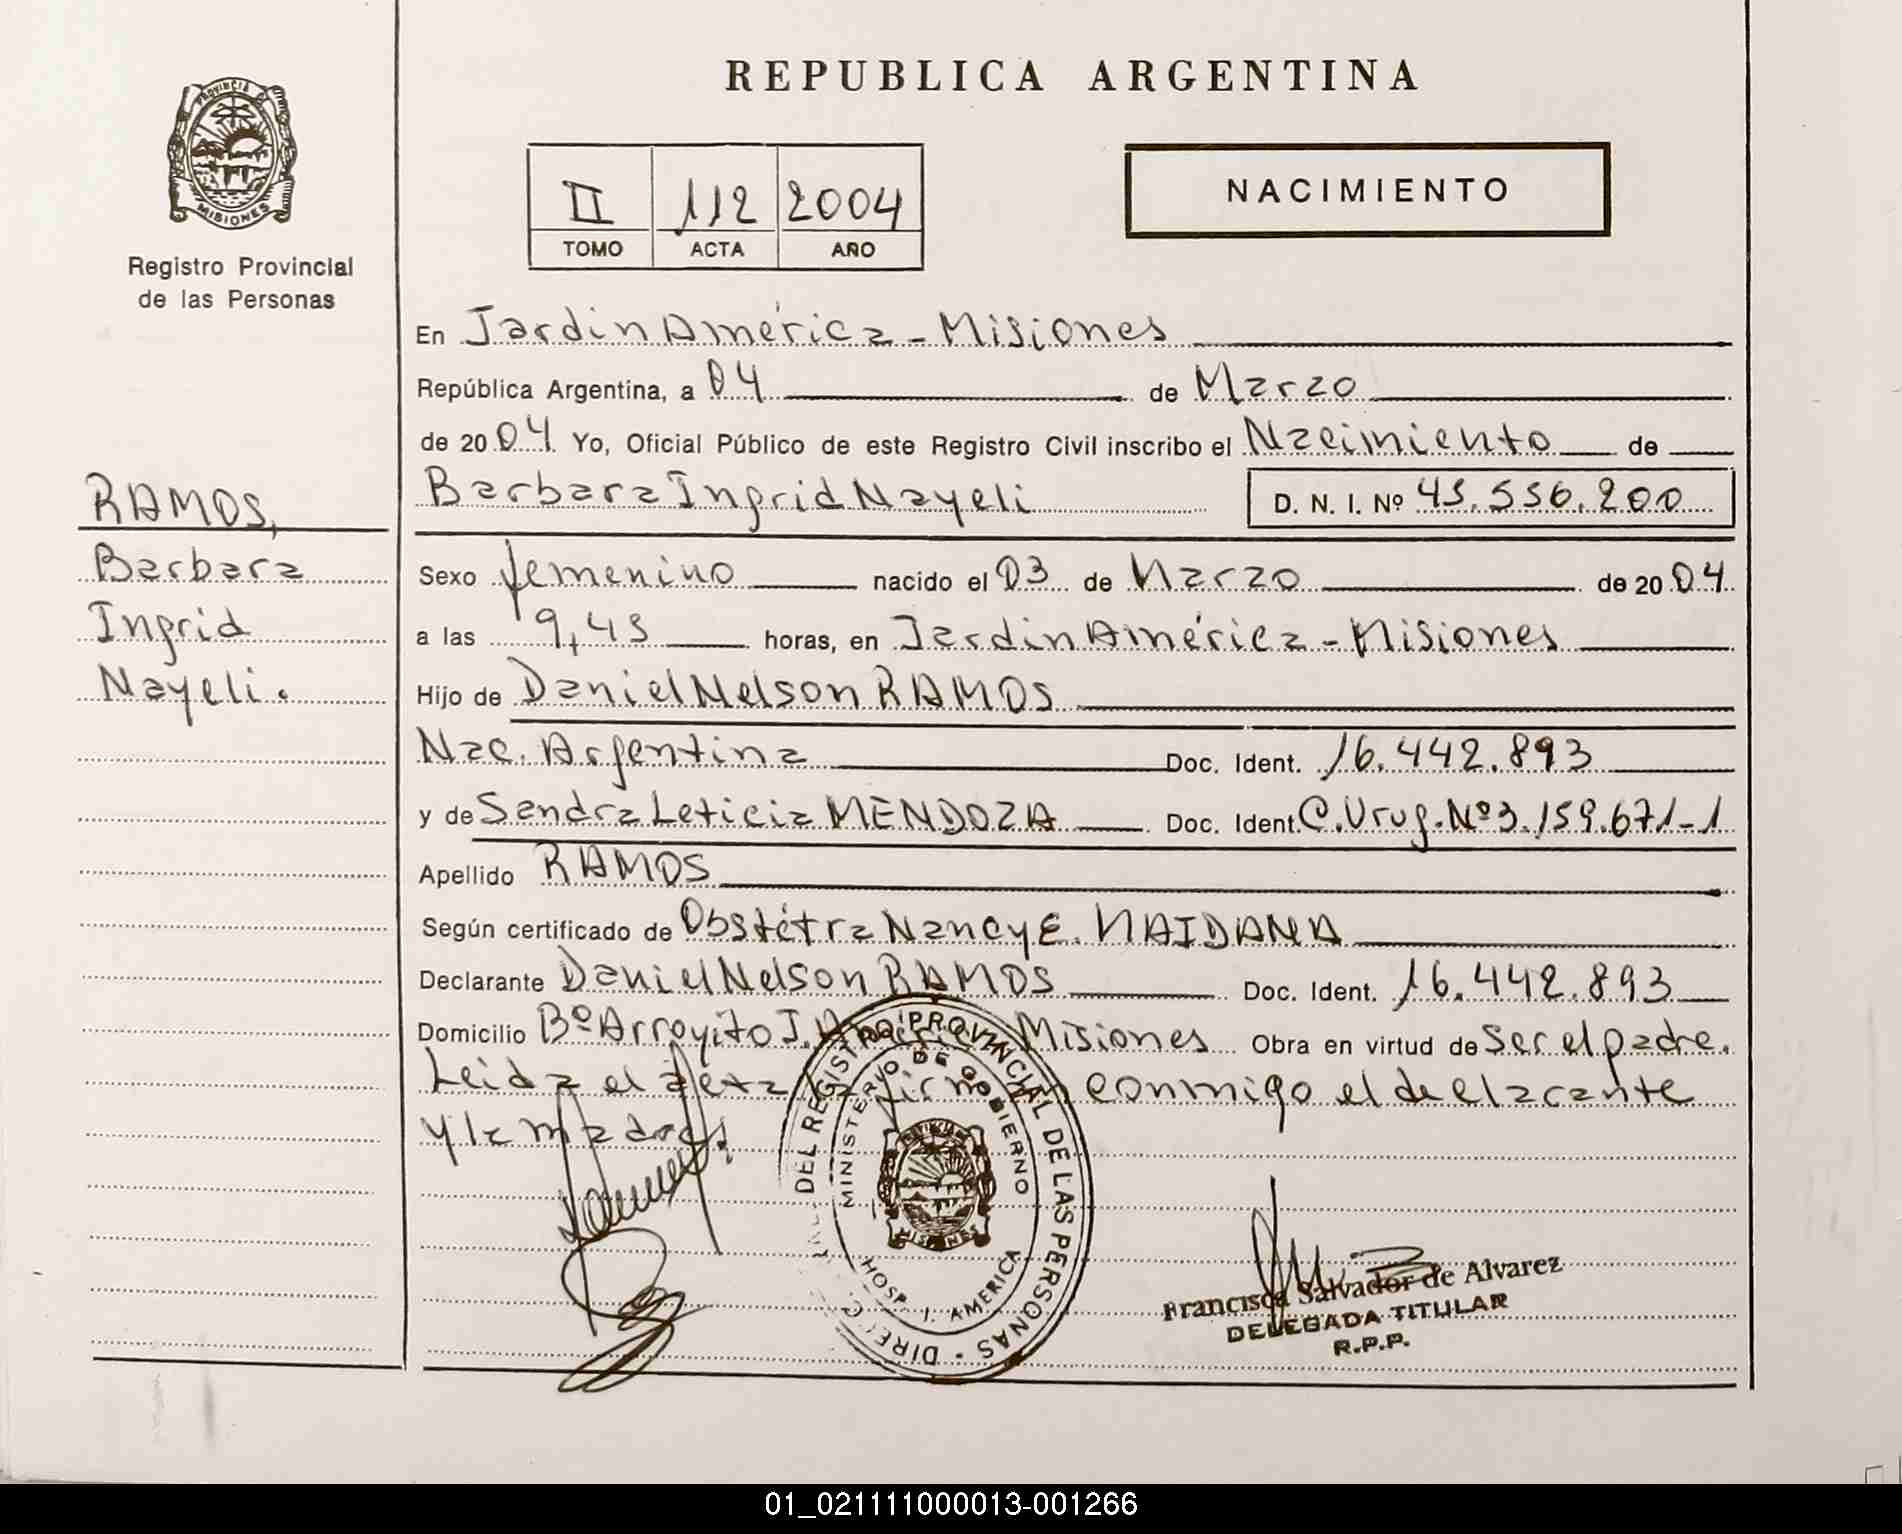 REPUBLICA ARGENTINA
PROVINCIA D
MISIONES
Registro Provincial
de las Personas
II 112 2004
TOMO ACTA AÑO
NACIMIENTO
En Jardin América - Misiones
República Argentina, a 04 de Marzo
de 2004 Yo, Oficial Público de este Registro Civil inscribo el Nacimiento de
Barbara Ingrid Nayeli D. N. I. Nº 45.556.200
RAMOS,
Barbara
Ingrid
Nayeli.
Sexo femenino nacido el 03 de Marzo de 2004
a las 9,45 horas, en Jardin América - Misiones
Hijo de Daniel Nelson RAMOS
Nac. Argentina Doc. Ident. 16.442.893
y de Sandra Leticia MENDOZA Doc. Ident. C.Urug.Nº3.159.671-1
Apellido RAMOS
Según certificado de Obstétra Nancy E. MAIDANA
Declarante Daniel Nelson RAMOS Doc. Ident. 16.442.893
Domicilio Bº Arroyito J. América Misiones Obra en virtud de ser el padre.
Leida el acta la firman conmigo el declarante
y la madre.
DEL REGISTRO PROVINCIAL DE LAS PERSONAS
MINISTERIO DE GOBIERNO
MISIONES
HOSP. J. AMERICA
Francisca Salvador de Alvarez
DELEGADA TITULAR
R.P.P.
01_021111000013-001266